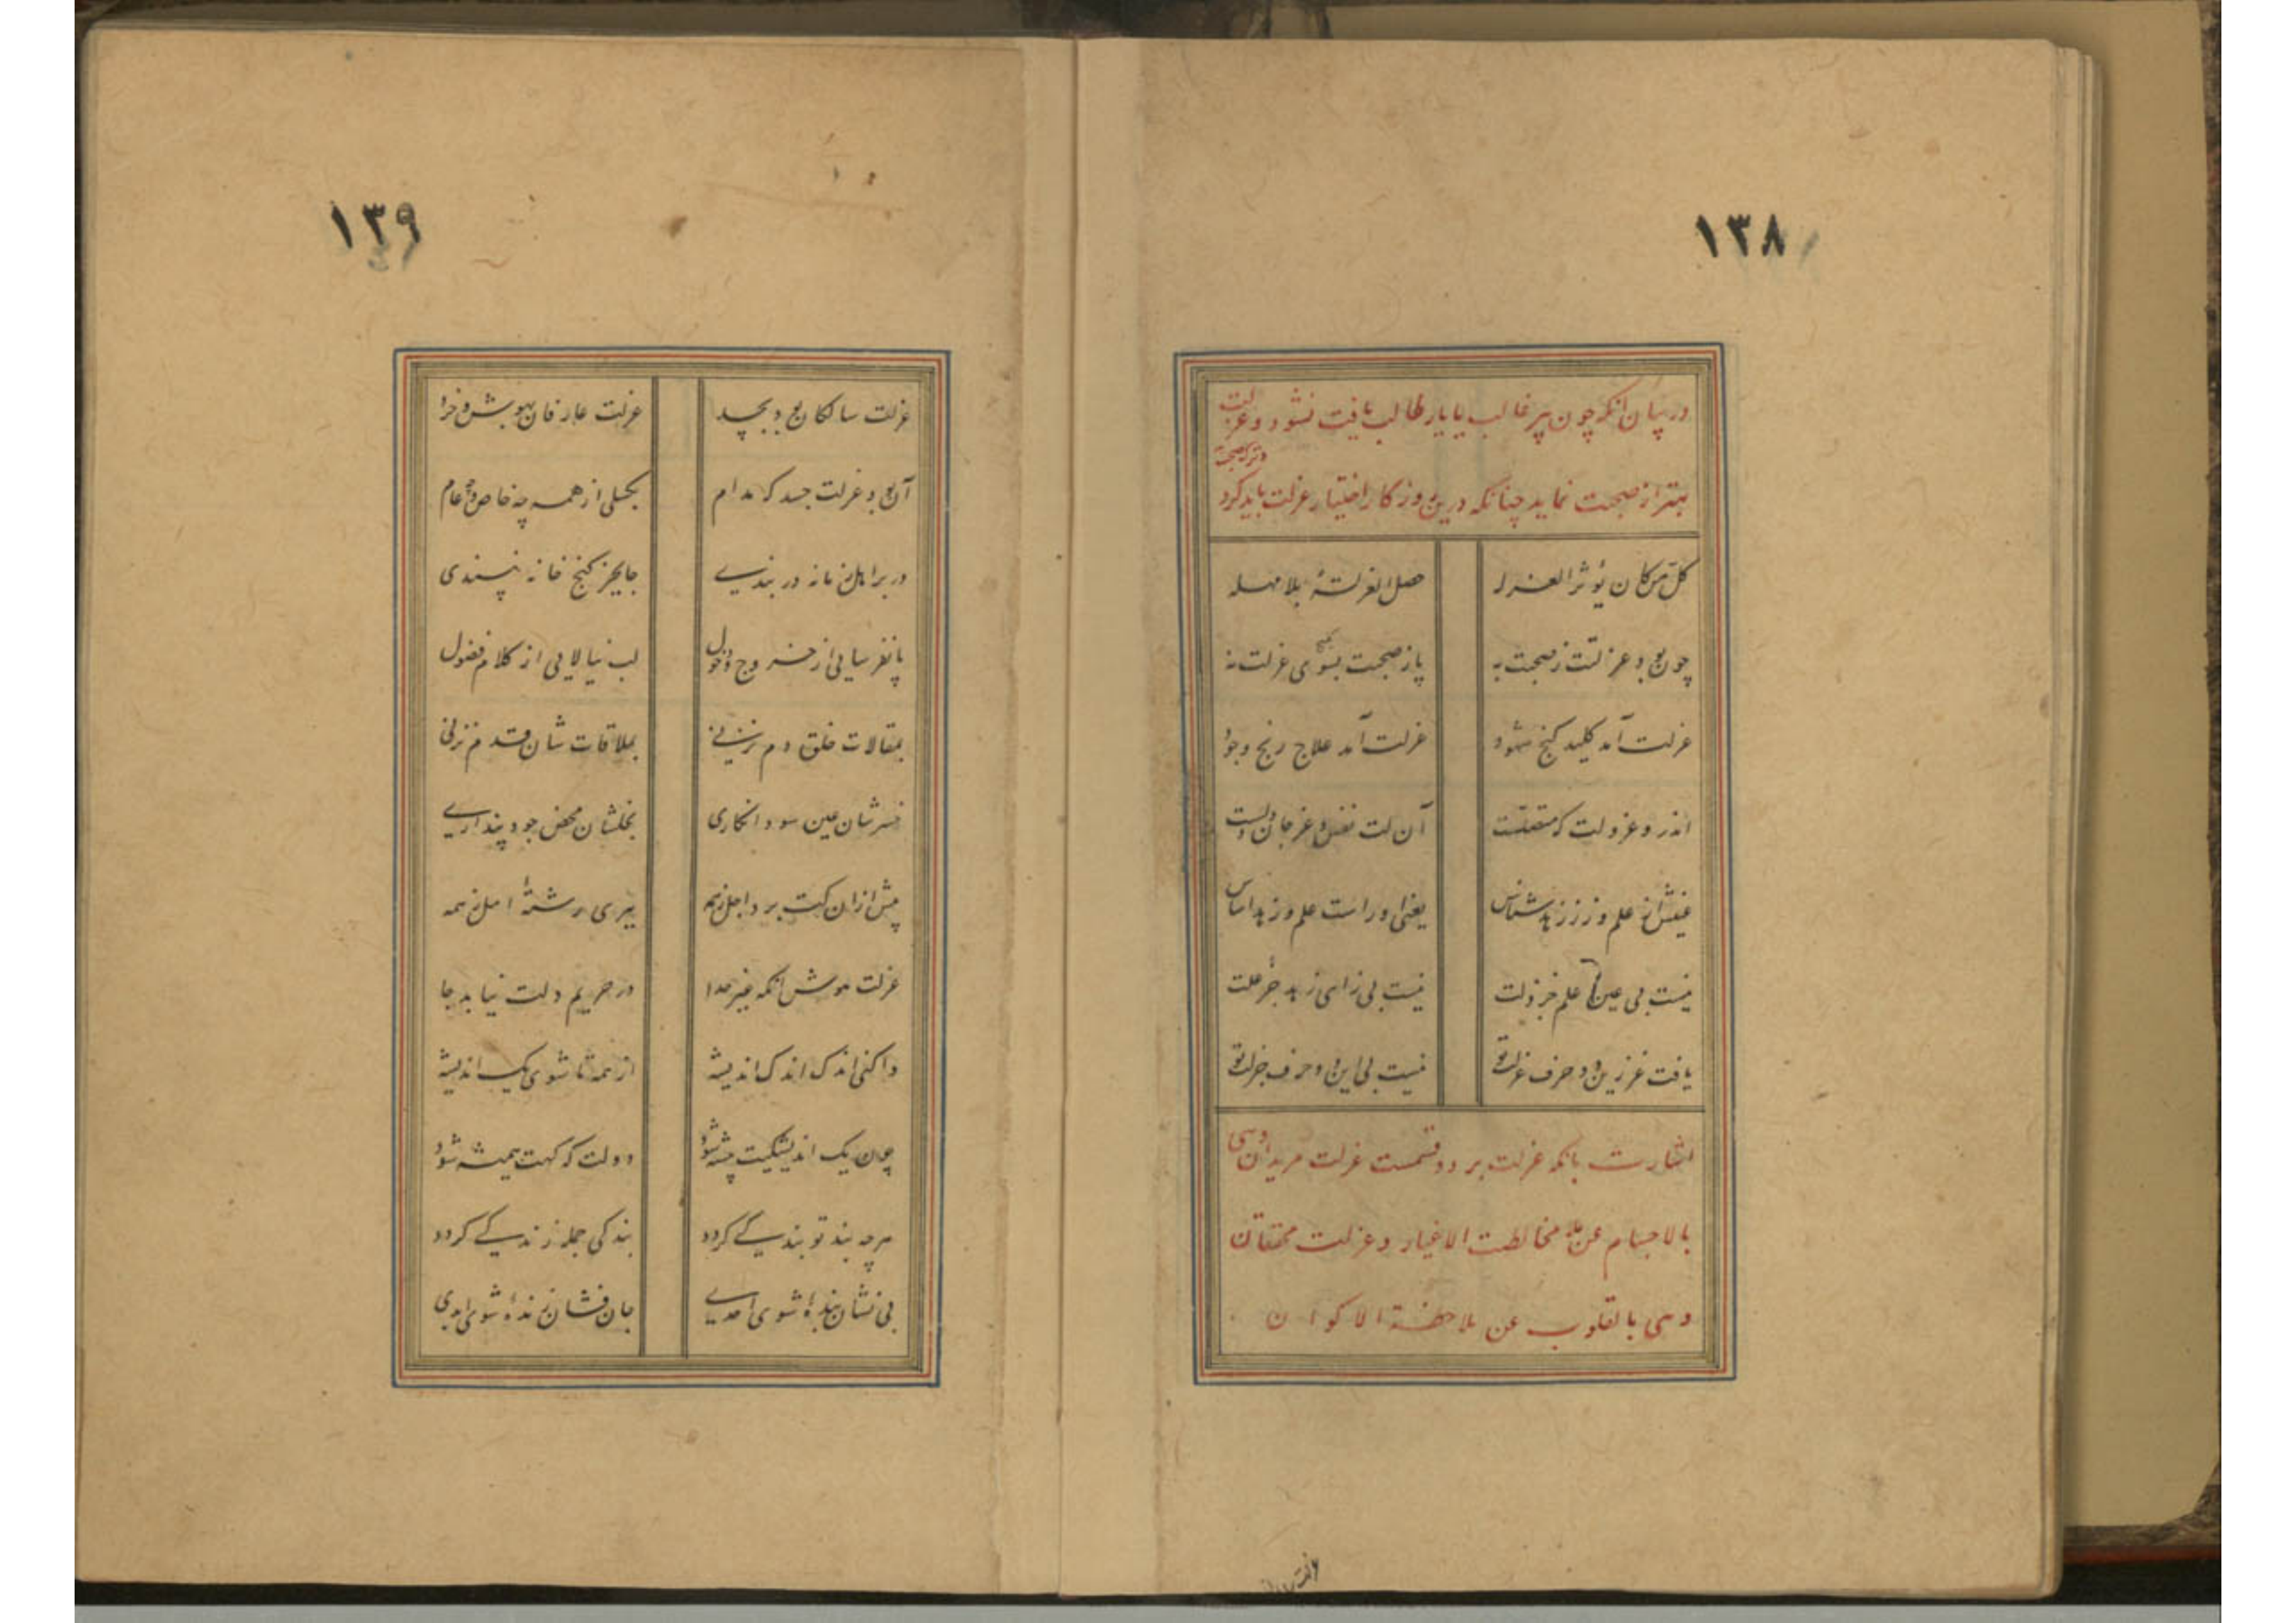 ۱۳۸
در بیان آنکه چون پیر غالب یا یار طالب یافت نشود و عزلت
و ترک صحبت
بهتر از صحبت نماید چنانکه درین روزگار اختیار عزلت باید کرد
کل من کان یؤثر العزله حصل العز لته بلا مهله
چون بود عزلتت ز صحبت به پا ز صحبت بسوی عزلت نه
عزلت آمد کلید گنج شهود عزلت آمد علاج رنج وجود
اندرو عز و لت که متفقست آن لت نفس و عز جان و دلست
عینش از علم و ز ز زهد شناس یعنی او راست علم و زهد اساس
نیست بی عین علم جز زلت نیست بی زای زهد جز علت
یافت عز زین دو حرف عزلت تو نیست بی این دو حرف جز لت تو
اشارت بانکه عزلت بر دو قسمست عزلت مریدان وهی
بالاجسام عن مخالطت الاغیار و عزلت محققان
وهی بالقلوب عن ملاحظة الاکوان
۱۳۹
عزلت سالکان بود بجسد عزلت عارفان بهوش و خرد
آن بود عزلت جسد که مدام بگسلی از همه چه خاص و چه عام
در بر اهل زمانه در بندی جای جز کنج خانه نپسندی
پا نفرسایی از خروج و دخول لب نیالایی از کلام فضول
بمقالات خلق دم نزنی بملاقات شان قدم نزنی
خسرشان عین سود انگاری بخلشان محض جود پنداری
پیش ازان کت برد اجل ز همه ببری رشتهٔ امل ز همه
عزلت هوش آنکه غیر خدا در حریم دلت نیابد جا
واکنی اندک اندک اندیشه از همه تا شوی یک اندیشه
چون یک اندیشگیت پیشه شود دولت که گهت همیشه شود
هرچه بند تو بندگی گردد بندگی جمله زندگی گردد
بی نشان بندهٔ شوی احدی جان فشان زندهٔ شوی ابدی